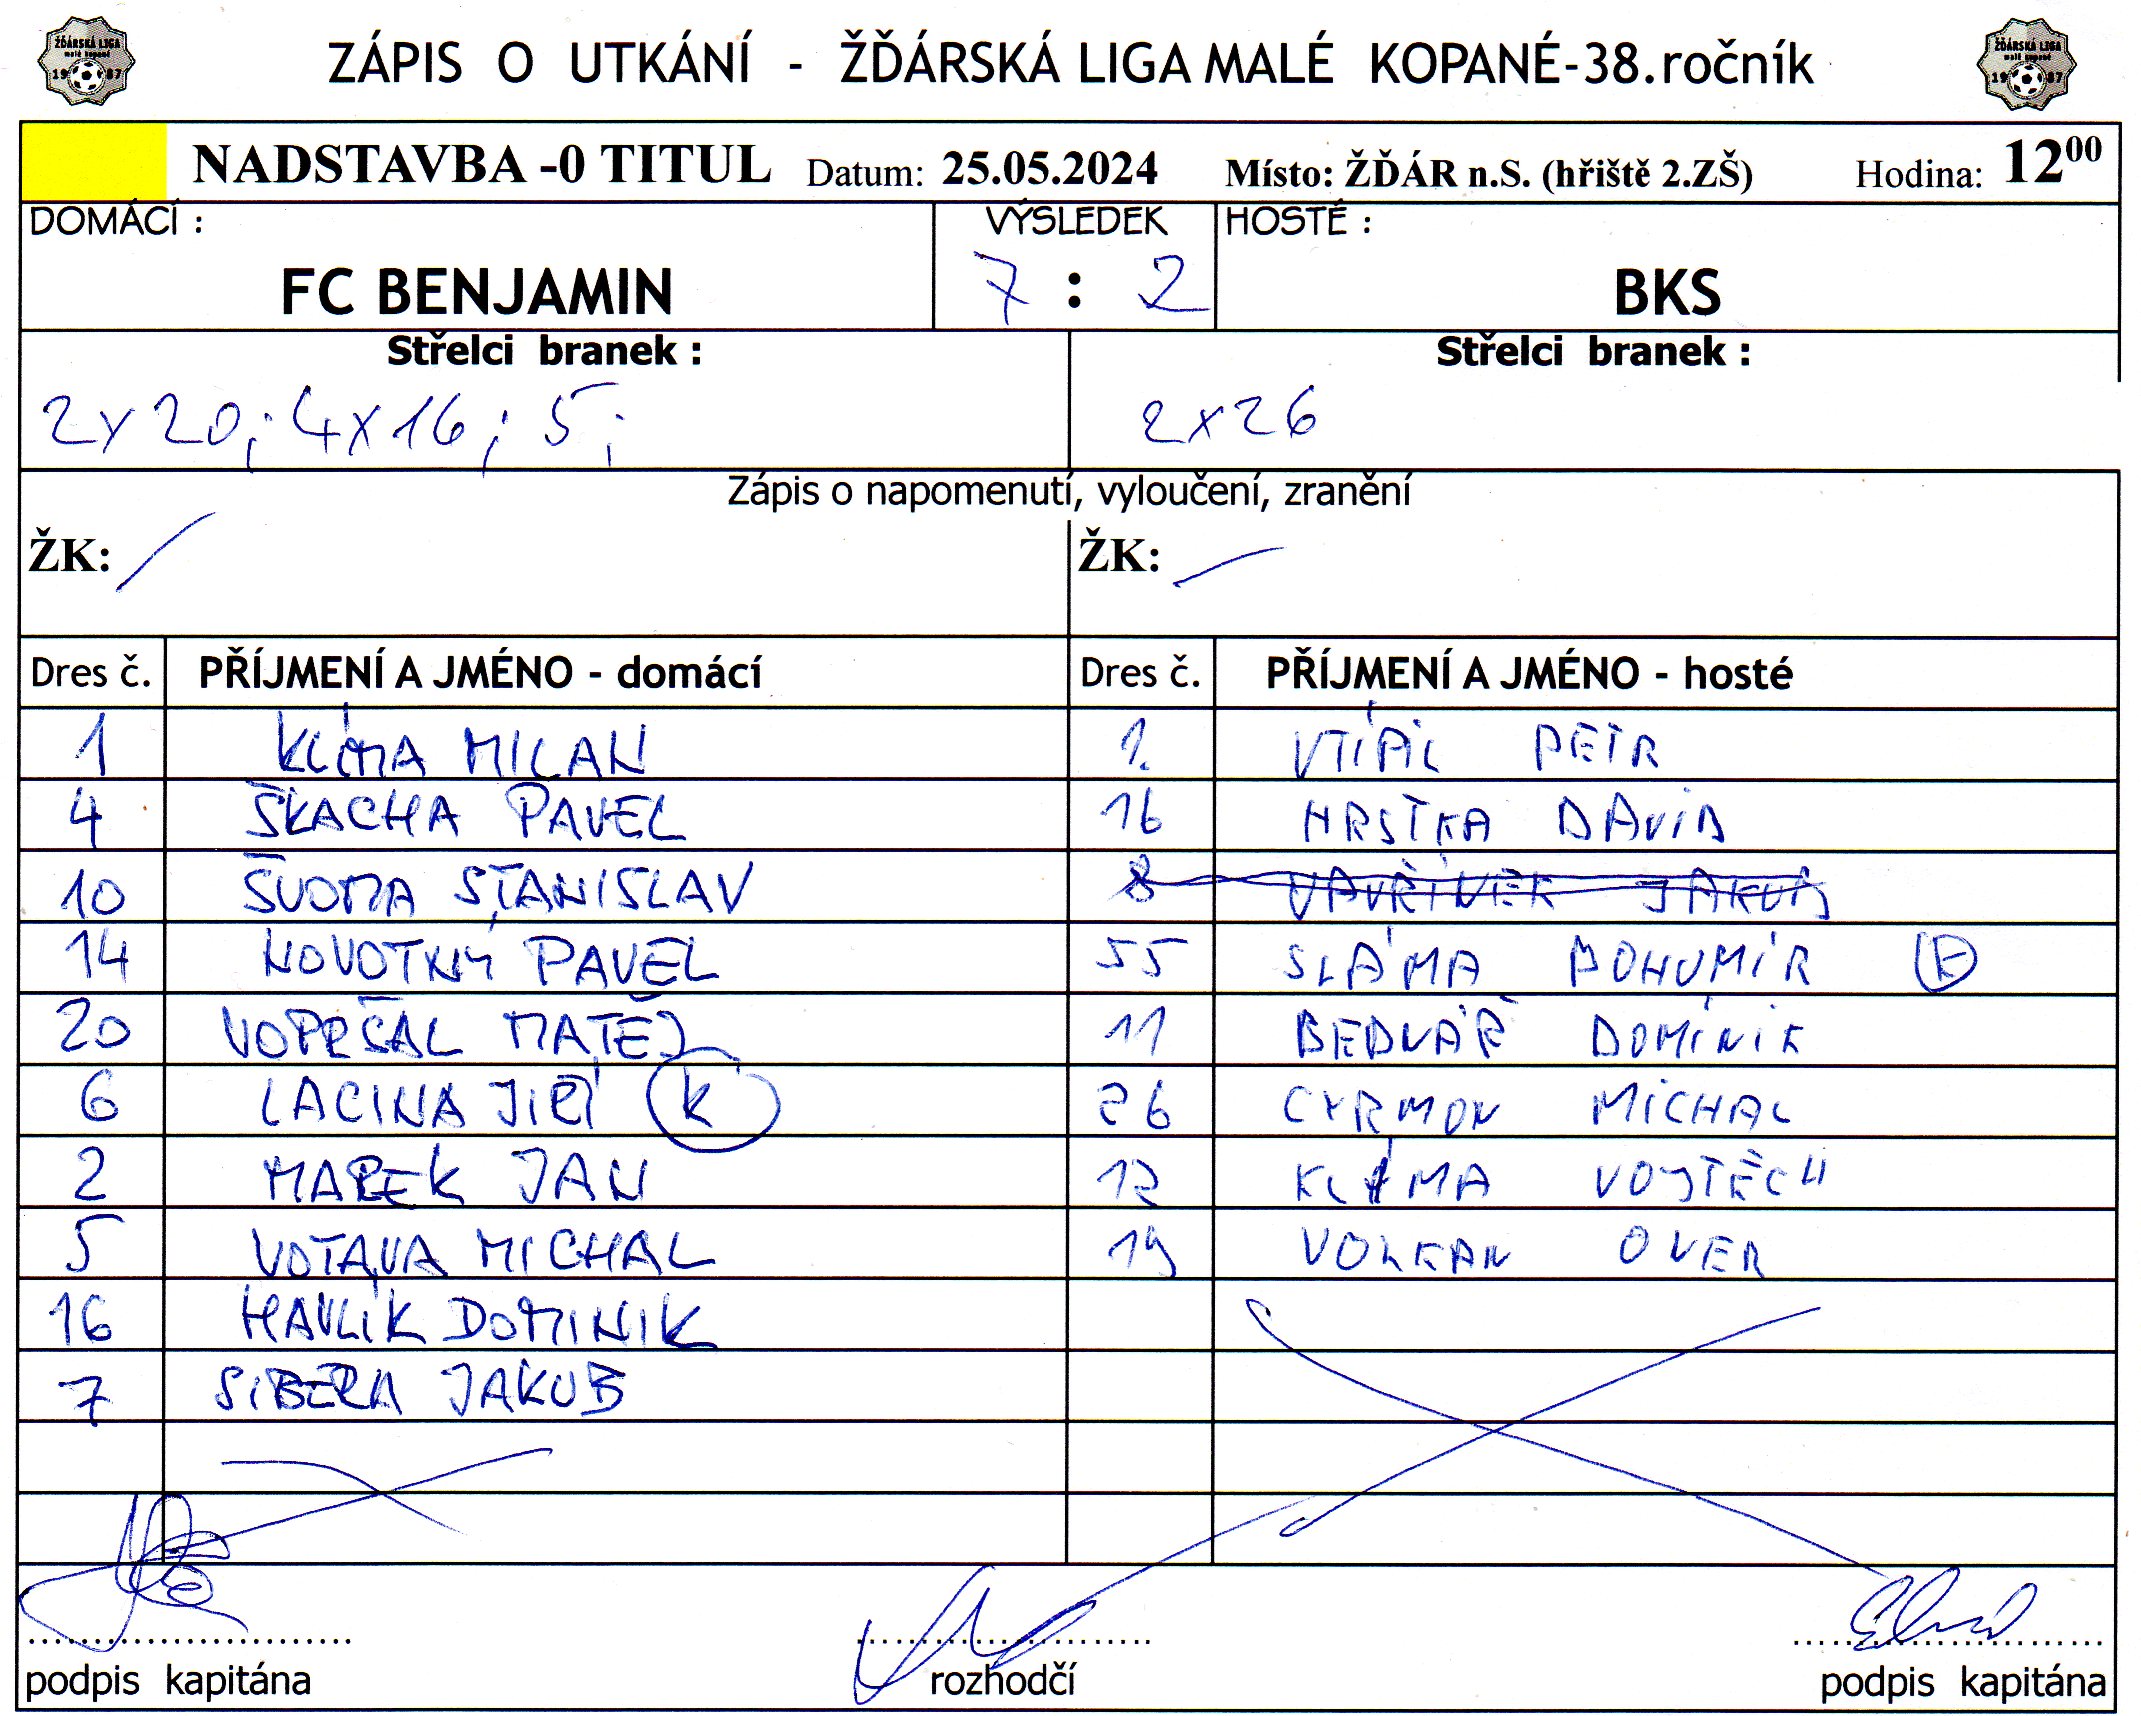 ŽĎÁRSKÁ LIGA
malé kopané
1987
ZÁPIS O UTKÁNÍ - ŽĎÁRSKÁ LIGA MALÉ KOPANÉ-38.ročník
ŽĎÁRSKÁ LIGA
malé kopané
1987
NADSTAVBA -0 TITUL Datum: 25.05.2024 Místo: ŽĎÁR n.S. (hřiště 2.ZŠ) Hodina: 12 00
DOMÁCÍ : VÝSLEDEK HOSTÉ :
FC BENJAMIN 7 : 2 BKS
Střelci branek : Střelci branek :
2x20; 4x16; 5; 2x26
Zápis o napomenutí, vyloučení, zranění
ŽK: / ŽK: /
Dres č. PŘÍJMENÍ A JMÉNO - domácí Dres č. PŘÍJMENÍ A JMÉNO - hosté
1 KLÍMA MILAN 1. VTÍPIL PETR
4 ŠKACHA PAVEL 16 HRSTKA DAVID
10 ŠVOMA STANISLAV 8 VAVŘÍNEK JAKUB
14 NOVOTNÝ PAVEL 55 SLÁMA BOHUMÍR K
20 VOPRŠAL MATĚJ 11 BEDNÁŘ DOMINIK
6 LACINA JIŘÍ K 26 CYRMON MICHAL
2 MAREK JAN 12 KLÍMA VOJTĚCH
5 VOTAVA MICHAL 19 VOLKAN OVER
16 HAVLÍK DOMINIK
7 SIBERA JAKUB
podpis kapitána rozhodčí podpis kapitána